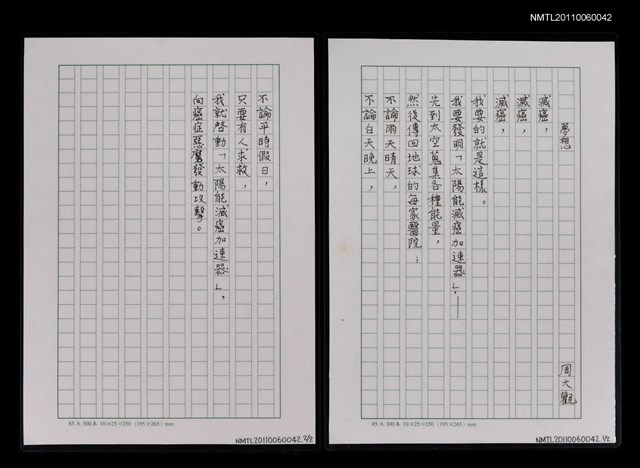 NMTL20110060042
夢想
周大觀
滅癌，
滅癌，
滅癌，
我要的就是這樣。
我要發明「太陽能滅癌加速器」，——
先到太空蒐集各種能量，
然後傳回地球的每家醫院；
不論雨天晴天，
不論白天晚上，
85. 6. 300本 10×25=250 (195×265) mm
NMTL20110060042 1/2
不論平時假日，
只要有人求救，
我就啓動「太陽能滅癌加速器」，
向癌症惡魔發動攻擊。
85. 6. 300本 10×25=250 (195×265) mm
NMTL20110060042 2/2